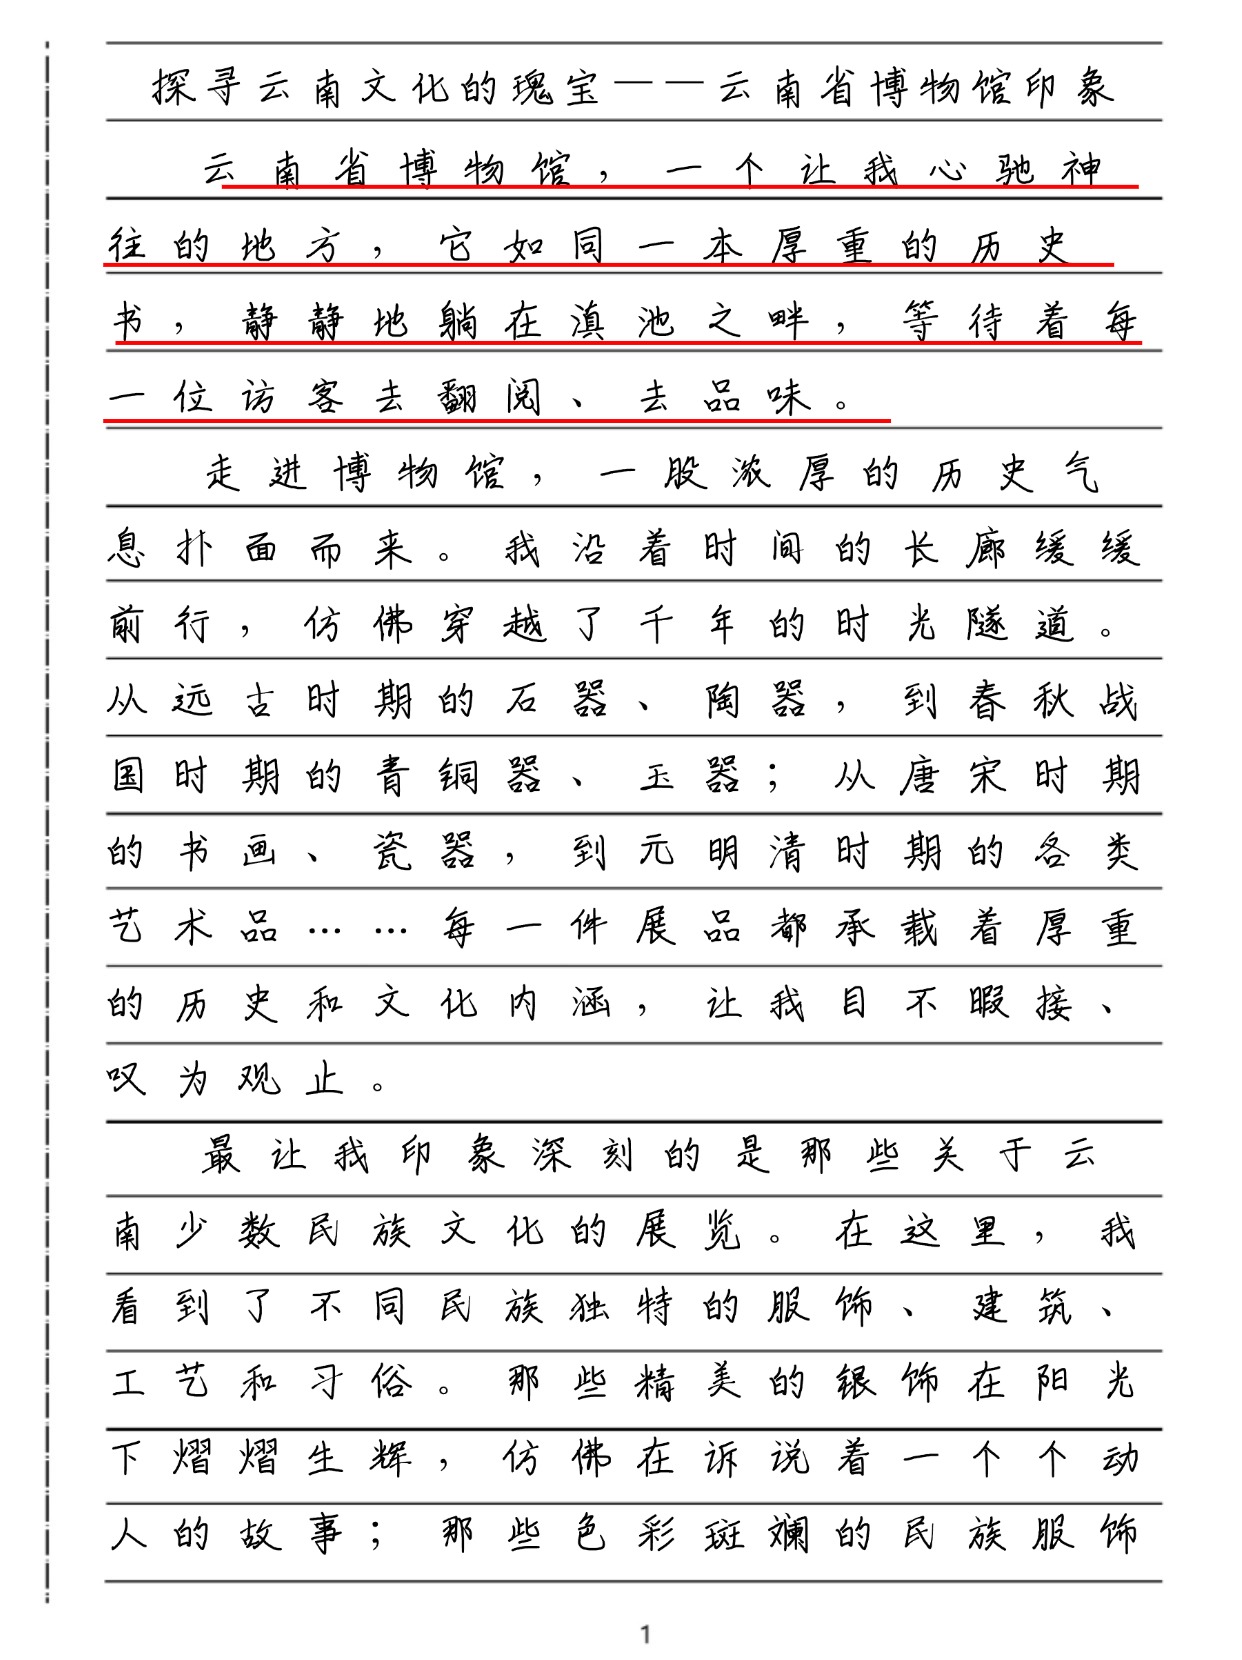 探寻云南文化的瑰宝——云南省博物馆印象
云南省博物馆，一个让我心驰神
往的地方，它如同一本厚重的历史
书，静静地躺在滇池之畔，等待着每
一位访客去翻阅、去品味。
走进博物馆，一股浓厚的历史气
息扑面而来。我沿着时间的长廊缓缓
前行，仿佛穿越了千年的时光隧道。
从远古时期的石器、陶器，到春秋战
国时期的青铜器、玉器；从唐宋时期
的书画、瓷器，到元明清时期的各类
艺术品……每一件展品都承载着厚重
的历史和文化内涵，让我目不暇接、
叹为观止。
最让我印象深刻的是那些关于云
南少数民族文化的展览。在这里，我
看到了不同民族独特的服饰、建筑、
工艺和习俗。那些精美的银饰在阳光
下熠熠生辉，仿佛在诉说着一个个动
人的故事；那些色彩斑斓的民族服饰
1